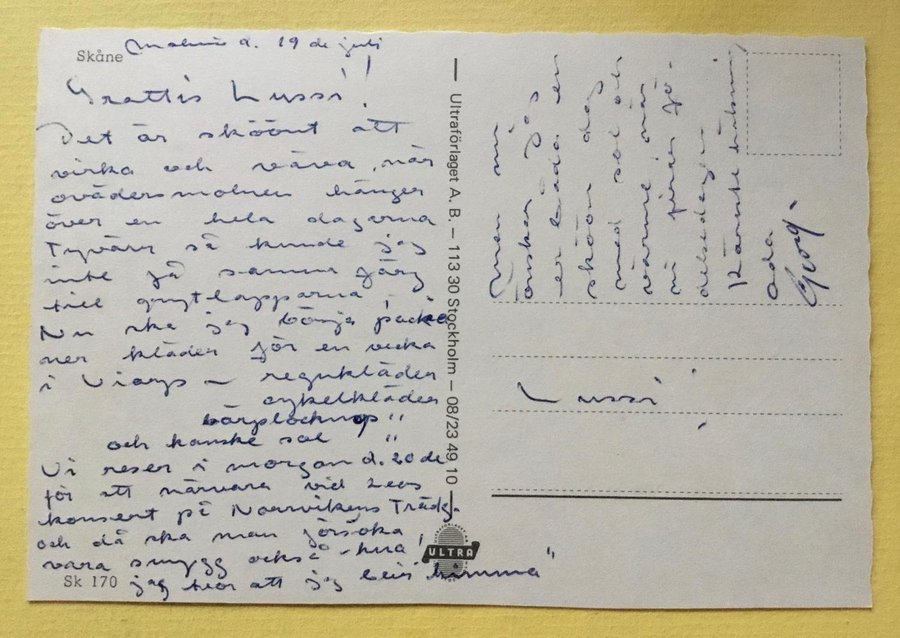 Skåne
Malmö d. 19 de juli
Grattis Lussi!
Det är skööönt att
virka och väva, när
ovädersmolnen hänger
över en hela dagarna
Tyvärr så kunde jag
inte få samma färg
till grytlapparna!
Nu ska jag börja packa
ner kläder för en vecka
i Viarp — regnkläder
cykelkläder
bärplocknings "
och kanske sol "
Vi reser i morgon d. 20 de
för att närvara vid Leos
konsert på Norrvikens Trädg.
och då ska man försöka
vara snygg också - hua!
jag tror att jag blir "himma"
Sk 170
Ultraförlaget A. B. — 113 30 Stockholm — 08/23 49 10
ULTRA
Men nu
önskar jag
er båda en
sköön dag
med sol och
värme när
ni firar fö-
delsedagen
Lussi